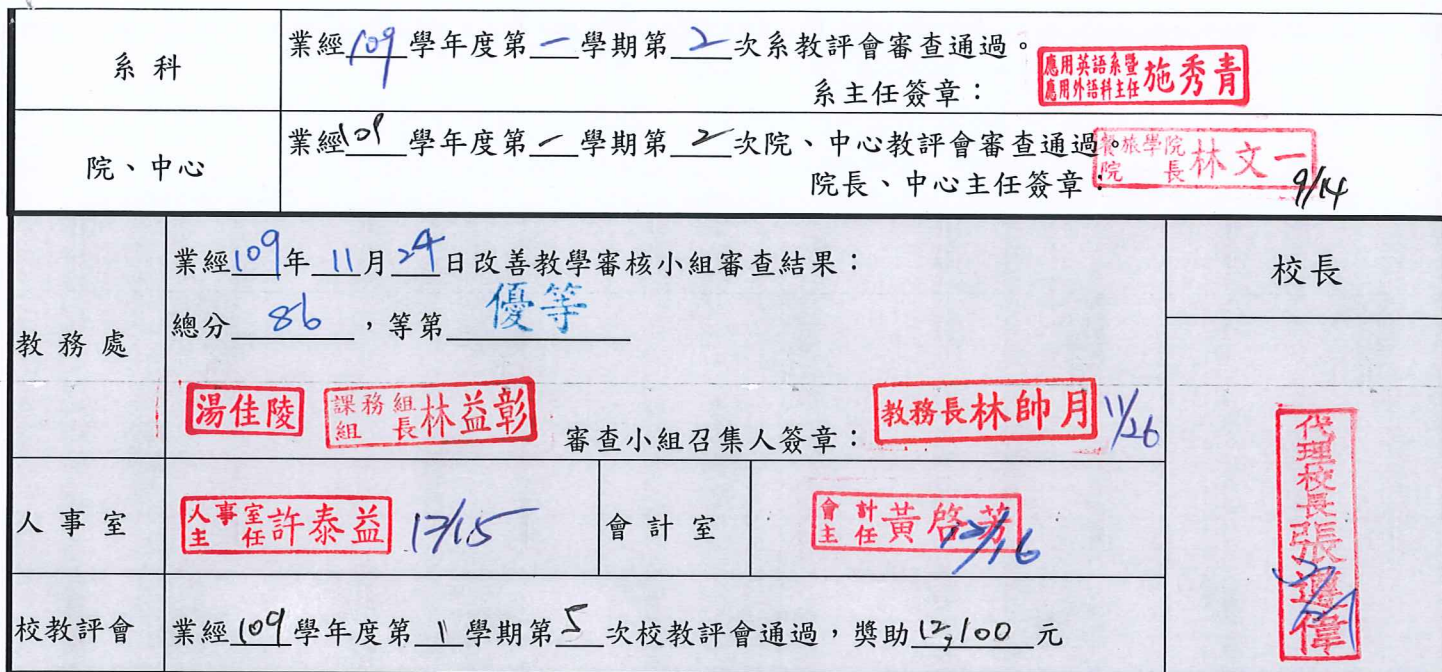 系科
業經109學年度第一學期第2次系教評會審查通過。
系主任簽章：
應用英語系暨
應用外語科主任
施秀青
院、中心
業經109學年度第一學期第2次院、中心教評會審查通過。
院長、中心主任簽章：
餐旅學院
院長
林文一
9/14
教務處
業經109年11月24日改善教學審核小組審查結果：
總分 86 ，等第 優等
湯佳陵
課務組
組長
林益彰
審查小組召集人簽章：
教務長林帥月
11/26
校長
代理校長張
偉
人事室
人事室
主任
許泰益
12/15
會計室
會計
主任
黃啓芳
12/16
校教評會
業經109學年度第1學期第5次校教評會通過，獎助12,100元